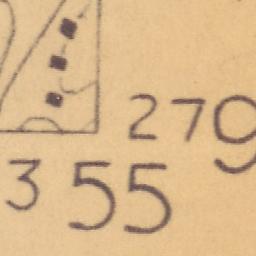 279
3 55